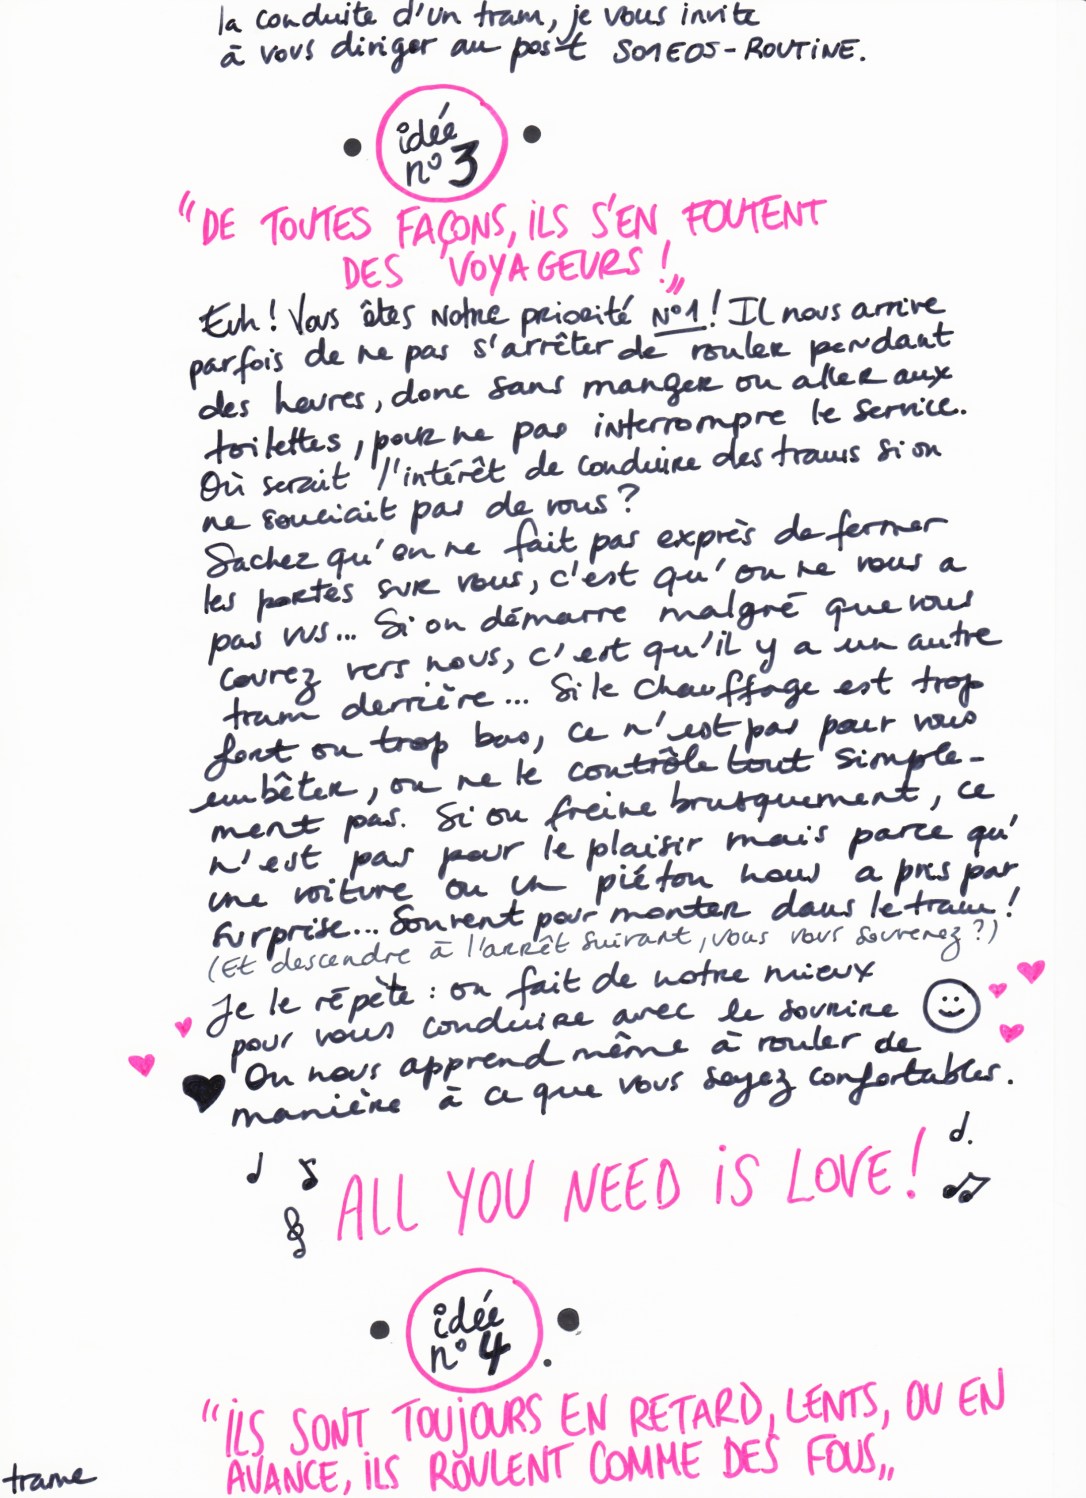 la conduite d'un tram, je vous invite
à vous diriger au post S01E05-ROUTINE.
idée
n° 3
"DE TOUTES FAÇONS, iLS S'EN FOUTENT
DES VOYAGEURS !"
Euh ! Vous êtes notre priorité N°1 ! Il nous arrive
parfois de ne pas s'arrêter de rouler pendant
des heures, donc sans manger ou aller aux
toilettes, pour ne pas interrompre le service.
Où serait l'intérêt de conduire des trams si on
ne souciait pas de vous ?
Sachez qu'on ne fait pas exprès de fermer
les portes sur vous, c'est qu'on ne vous a
pas vus... Si on démarre malgré que vous
courez vers nous, c'est qu'il y a un autre
tram derrière... Si le chauffage est trop
fort ou trop bas, ce n'est pas pour vous
embêter, on ne le contrôle tout simple-
ment pas. Si on freine brusquement, ce
n'est pas pour le plaisir mais parce qu'
une voiture ou un piéton nous a pris par
surprise... Souvent pour monter dans le tram !
(Et descendre à l'arrêt suivant, vous vous souvenez ?)
Je le répète : on fait de notre mieux
pour vous conduire avec le sourire
On nous apprend même à rouler de
manière à ce que vous soyez confortables.
ALL YOU NEED iS LOVE !
idée
n° 4
"iLS SONT TOUjOURS EN RETARD, LENTS, OU EN
AVANCE, iLS ROULENT COMME DES FOUS"
trame